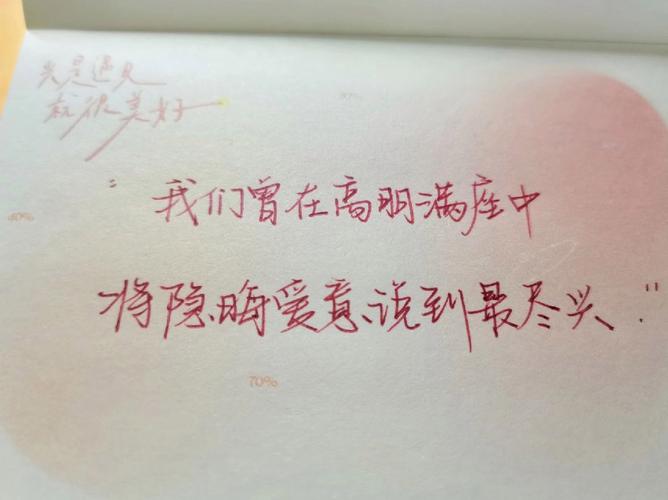 光是遇见
就很美好
"我们曾在高朋满座中
40%
将隐晦爱意说到最尽兴."
70%